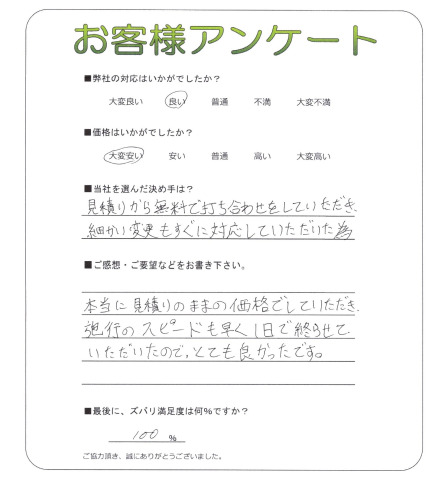 お客様アンケート
■弊社の対応はいかがでしたか?
大変良い 良い 普通 不満 大変不満
■価格はいかがでしたか?
大変安い 安い 普通 高い 大変高い
■当社を選んだ決め手は?
見積りから無料で打ち合わせをしていただき、
細かい変更もすぐに対応していただいた為
■ご感想・ご要望などをお書き下さい。
本当に見積りのままの価格でしていただき、
施行のスピードも早く1日で終らせて
いただいたので、とても良かったです。
■最後に、ズバリ満足度は何%ですか?
100 %
ご協力頂き、誠にありがとうございました。